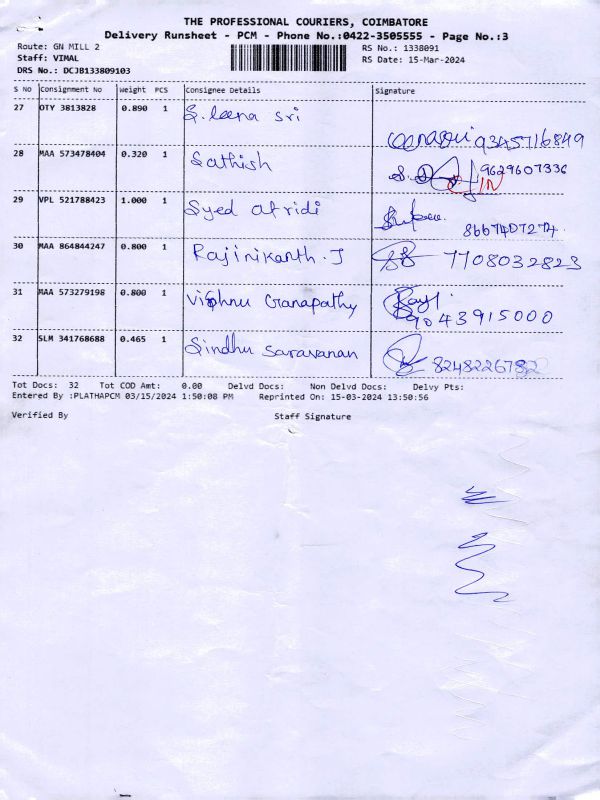 THE PROFESSIONAL COURIERS, COIMBATORE
Delivery Runsheet - PCM - Phone No.:0422-3505555 - Page No.:3
Route: GN MILL 2
Staff: VIMAL
DRS No.: DCJB133809103
RS No.: 1338091
RS Date: 15-Mar-2024
S No Consignment No Weight PCS Consignee Details Signature
27 OTY 3813828 0.890 1 S. leena sri 9345716849
28 MAA 573478404 0.320 1 Sathish 9629607336
29 VPL 521788423 1.000 1 Syed afridi 8667407274.
30 MAA 864844247 0.800 1 Rajinikanth . J 7708032823
31 MAA 573279198 0.800 1 Vishnu Granapathy 9043915000
32 SLM 341768688 0.465 1 Sindhu saravanan 8248226782
Tot Docs: 32 Tot COD Amt: 0.00 Delvd Docs: Non Delvd Docs: Delvy Pts:
Entered By :PLATHAPCM 03/15/2024 1:50:08 PM Reprinted On: 15-03-2024 13:50:56
Verified By Staff Signature